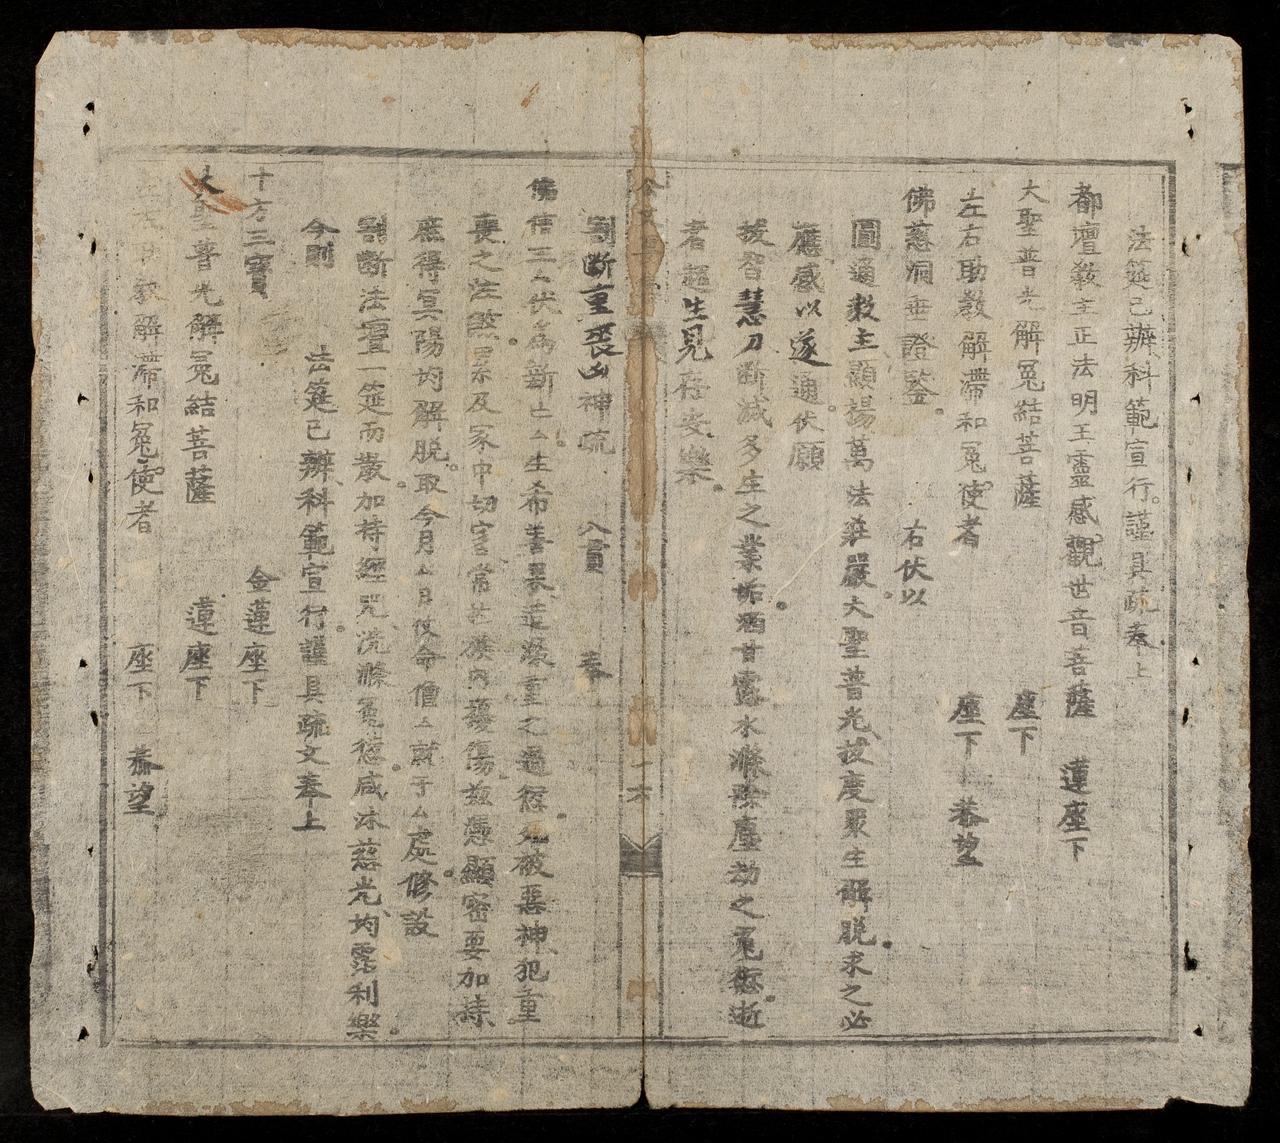 法筵已辦科範宣行謹具疏奉上
都壇教主正法明王靈感觀世音菩薩 蓮座下
大聖普光解冤結菩薩 座下
左右助教解滯和冤使者 座下 恭望
佛慈洞垂證鑒 右伏以
圓通教主顯揚萬法莊嚴大聖普光拔度眾生解脱求之必
應感以遂通伏願
拔智慧刀斷滅多生之業垢洒甘露水滌除塵劫之冤愆逝
者超生見存安樂
割斷重喪凶神疏 八員 奉
佛信三厶伏為新亡厶生希善果造深重之過愆 被惡神犯重
喪之注 累及家中切害常在族內擾傷茲憑顯密要加持
庶得冥陽均解脱取今月厶日仗命僧厶就于厶處修設
割斷法壇一筵而嚴加持經咒洗滌冤愆咸沐慈光均霑利樂
今則 法筵已辦科範宣行謹具疏文奉上
十方三寶 金蓮座下
大聖普光解冤結菩薩 蓮座下
左右助教解滯和冤使者 座下 恭望